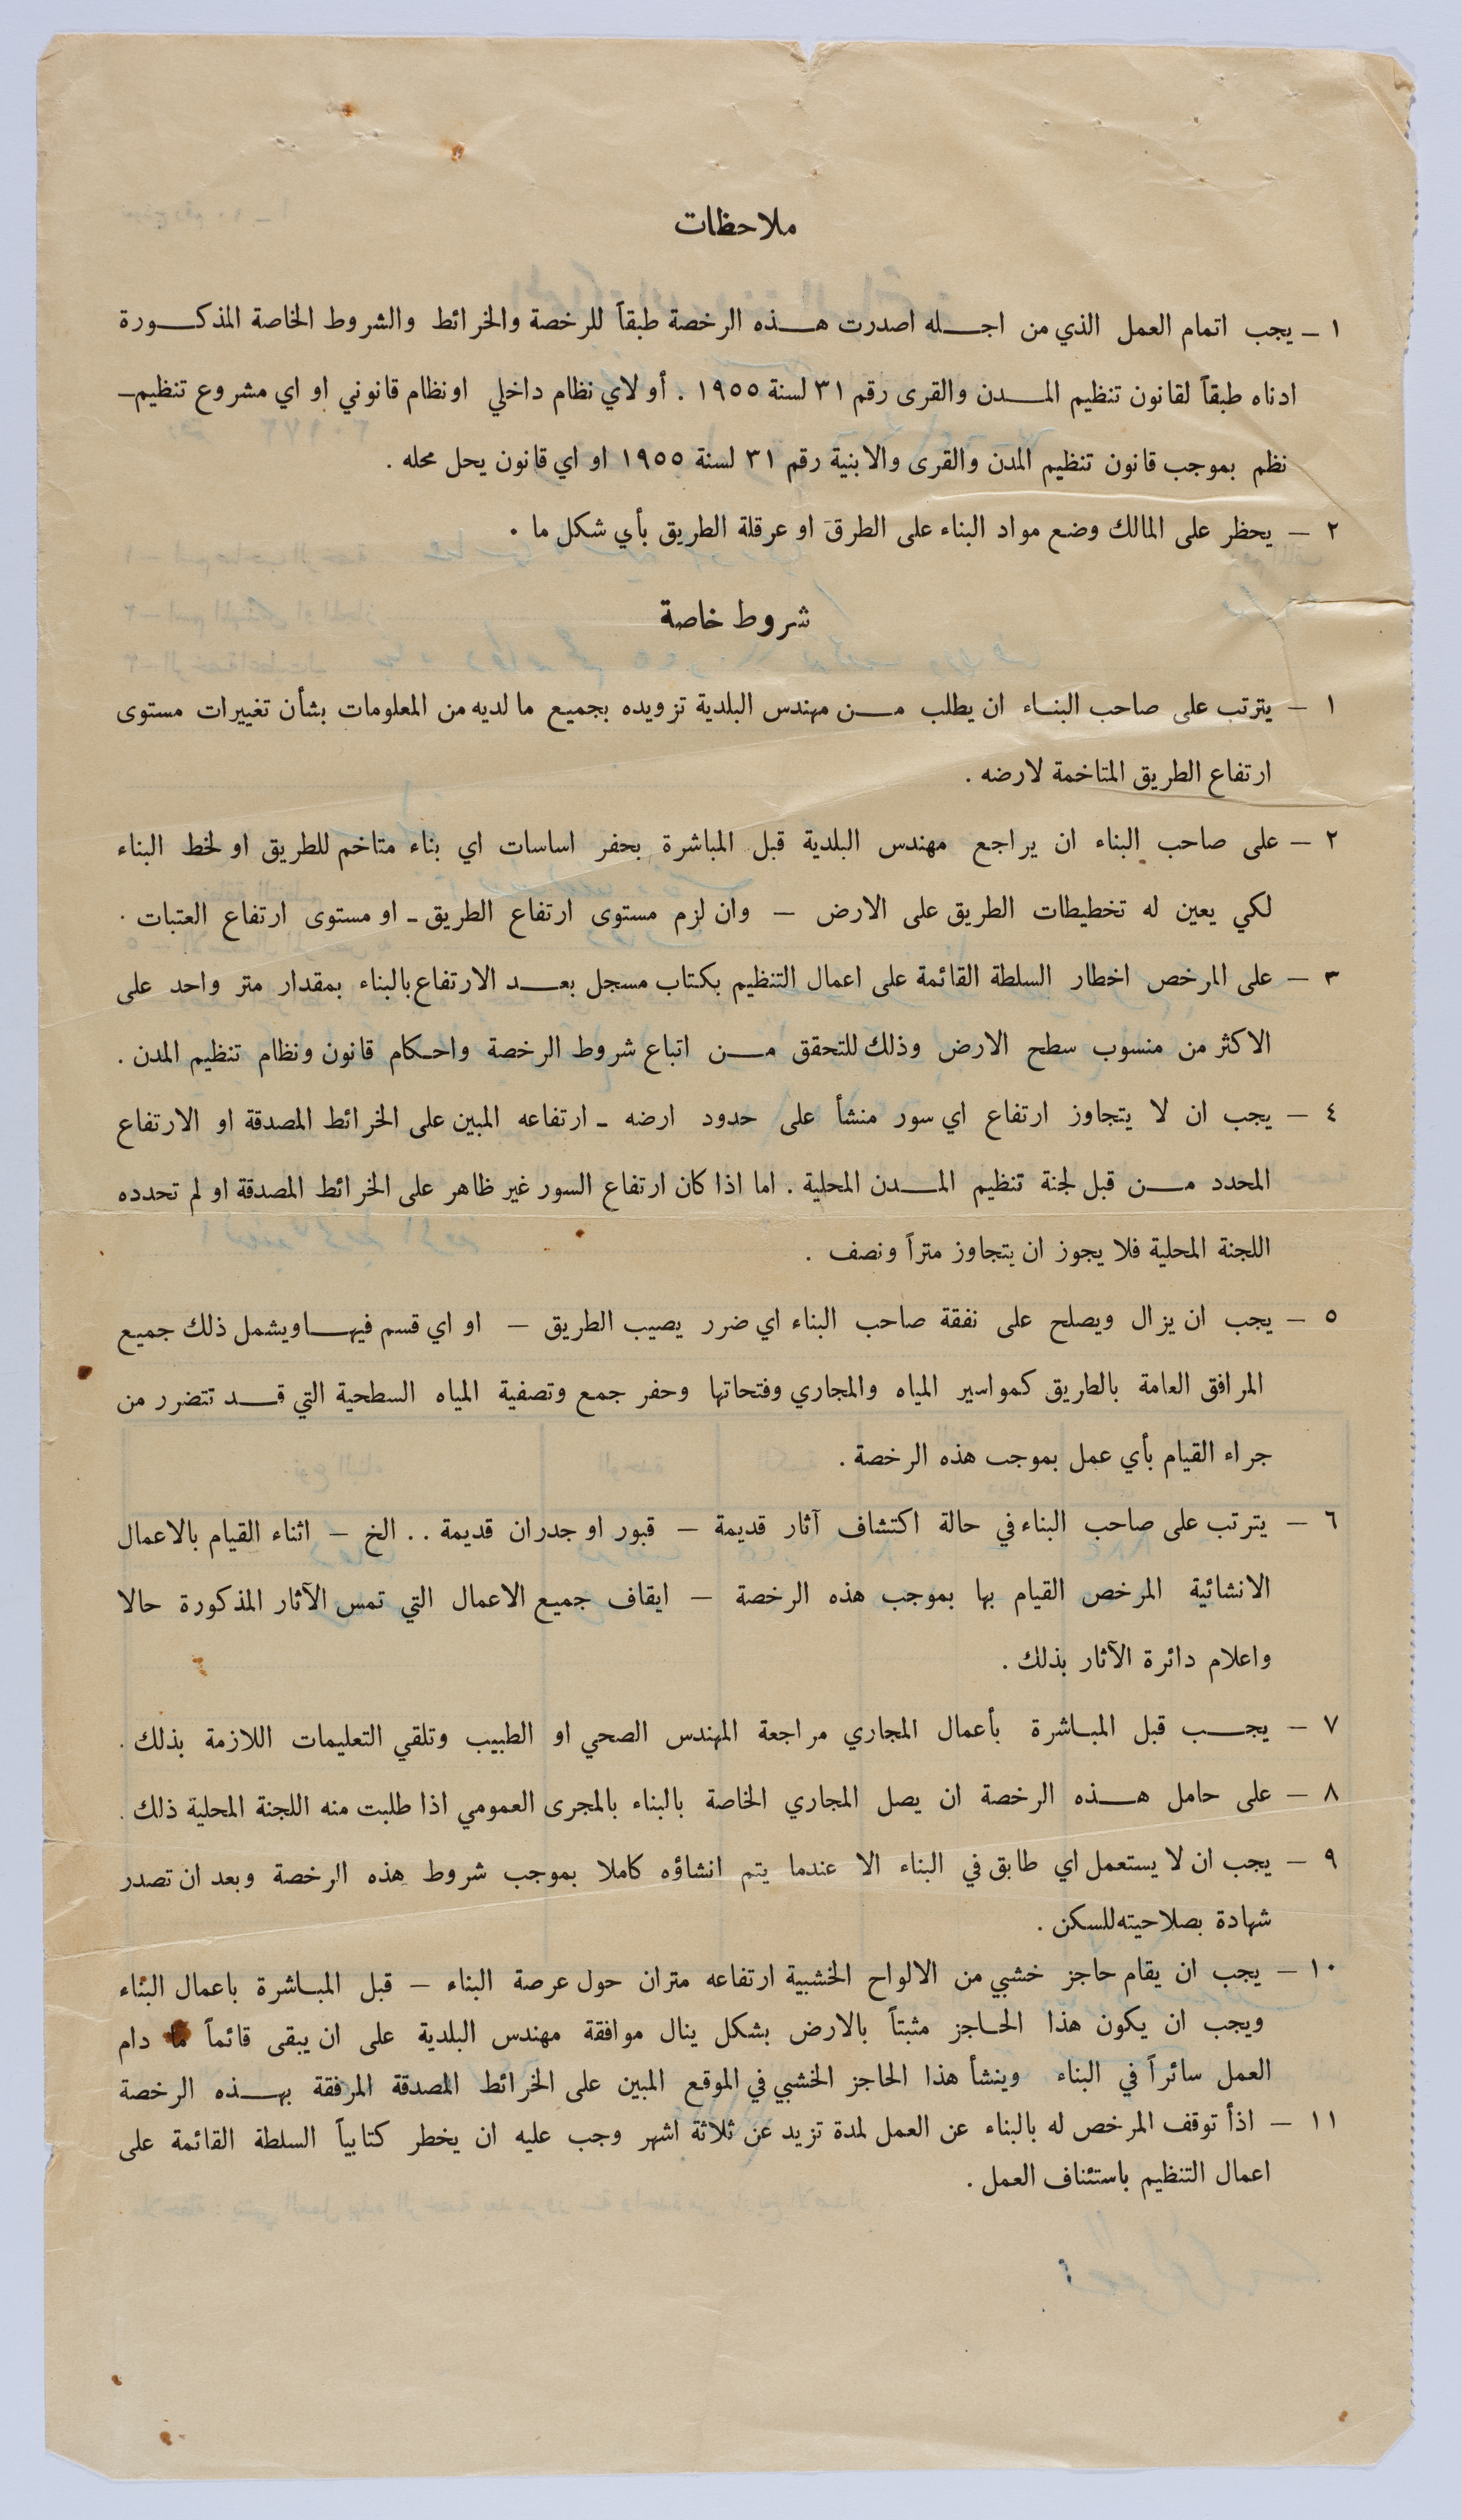 ملاحظات
١ – يجب اتمام العمل الذي من اجله اصدرت هذه الرخصة طبقاً للرخصة والخرائط والشروط الخاصة المذكورة
ادناه طبقاً لقانون تنظيم المدن والقرى رقم ٣١ لسنة ١٩٥٥ . أو لاي نظام داخلي او نظام قانوني او اي مشروع تنظيم –
نظم بموجب قانون تنظيم المدن والقرى والابنية رقم ٣١ لسنة ١٩٥٥ او اي قانون يحل محله .
٢ – يحظر على المالك وضع مواد البناء على الطرق او عرقلة الطريق بأي شكل ما .
شروط خاصة
١ – يترتب على صاحب البناء ان يطلب من مهندس البلدية تزويده بجميع ما لديه من المعلومات بشأن تغييرات مستوى
ارتفاع الطريق المتاخمة لارضه .
٢ – على صاحب البناء ان يراجع مهندس البلدية قبل المباشرة بحفر اساسات اي بناء متاخم للطريق او لخط البناء
لكي يعين له تخطيطات الطريق على الارض – وان لزم مستوى ارتفاع الطريق – او مستوى ارتفاع العتبات .
٣ – على المرخص اخطار السلطة القائمة على اعمال التنظيم بكتاب مسجل بعد الارتفاع بالبناء بمقدار متر واحد على
الاكثر من منسوب سطح الارض وذلك للتحقق من اتباع شروط الرخصة واحكام قانون ونظام تنظيم المدن .
٤ – يجب ان لا يتجاوز ارتفاع اي سور منشأ على حدود ارضه – ارتفاعه المبين على الخرائط المصدقة او الارتفاع
المحدد من قبل لجنة تنظيم المدن المحلية . اما اذا كان ارتفاع السور غير ظاهر على الخرائط المصدقة او لم تحدده
اللجنة المحلية فلا يجوز ان يتجاوز متراً ونصف .
٥ – يجب ان يزال ويصلح على نفقة صاحب البناء اي ضرر يصيب الطريق – او اي قسم فيها ويشمل ذلك جميع
المرافق العامة بالطريق كمواسير المياه والمجاري وفتحاتها وحفر جمع وتصفية المياه السطحية التي قد تتضرر من
جراء القيام بأي عمل بموجب هذه الرخصة .
٦ – يترتب على صاحب البناء في حالة اكتشاف آثار قديمة – قبور او جدران قديمة . . الخ – اثناء القيام بالاعمال
الانشائية المرخص القيام بها بموجب هذه الرخصة – ايقاف جميع الاعمال التي تمس الآثار المذكورة حالا
واعلام دائرة الآثار بذلك .
٧ – يجب قبل المباشرة بأعمال المجاري مراجعة المهندس الصحي او الطبيب وتلقي التعليمات اللازمة بذلك .
٨ – على حامل هذه الرخصة ان يصل المجاري الخاصة بالبناء بالمجرى العمومي اذا طلبت منه اللجنة المحلية ذلك .
٩ – يجب ان لا يستعمل اي طابق في البناء الا عندما يتم انشاؤه كاملا بموجب شروط هذه الرخصة وبعد ان تصدر
شهادة بصلاحيته للسكن .
١٠ – يجب ان يقام حاجز خشبي من الالواح الخشبية ارتفاعه متران حول عرصة البناء – قبل المباشرة باعمال البناء
ويجب ان يكون هذا الحاجز مثبتاً بالارض بشكل ينال موافقة مهندس البلدية على ان يبقى قائماً ما دام
العمل سائراً في البناء وينشأ هذا الحاجز الخشبي في الموقع المبين على الخرائط المصدقة المرفقة بهذه الرخصة
١١ – اذا توقف المرخص له بالبناء عن العمل لمدة تزيد عن ثلاثة اشهر وجب عليه ان يخطر كتابياً السلطة القائمة على
اعمال التنظيم باستئناف العمل .